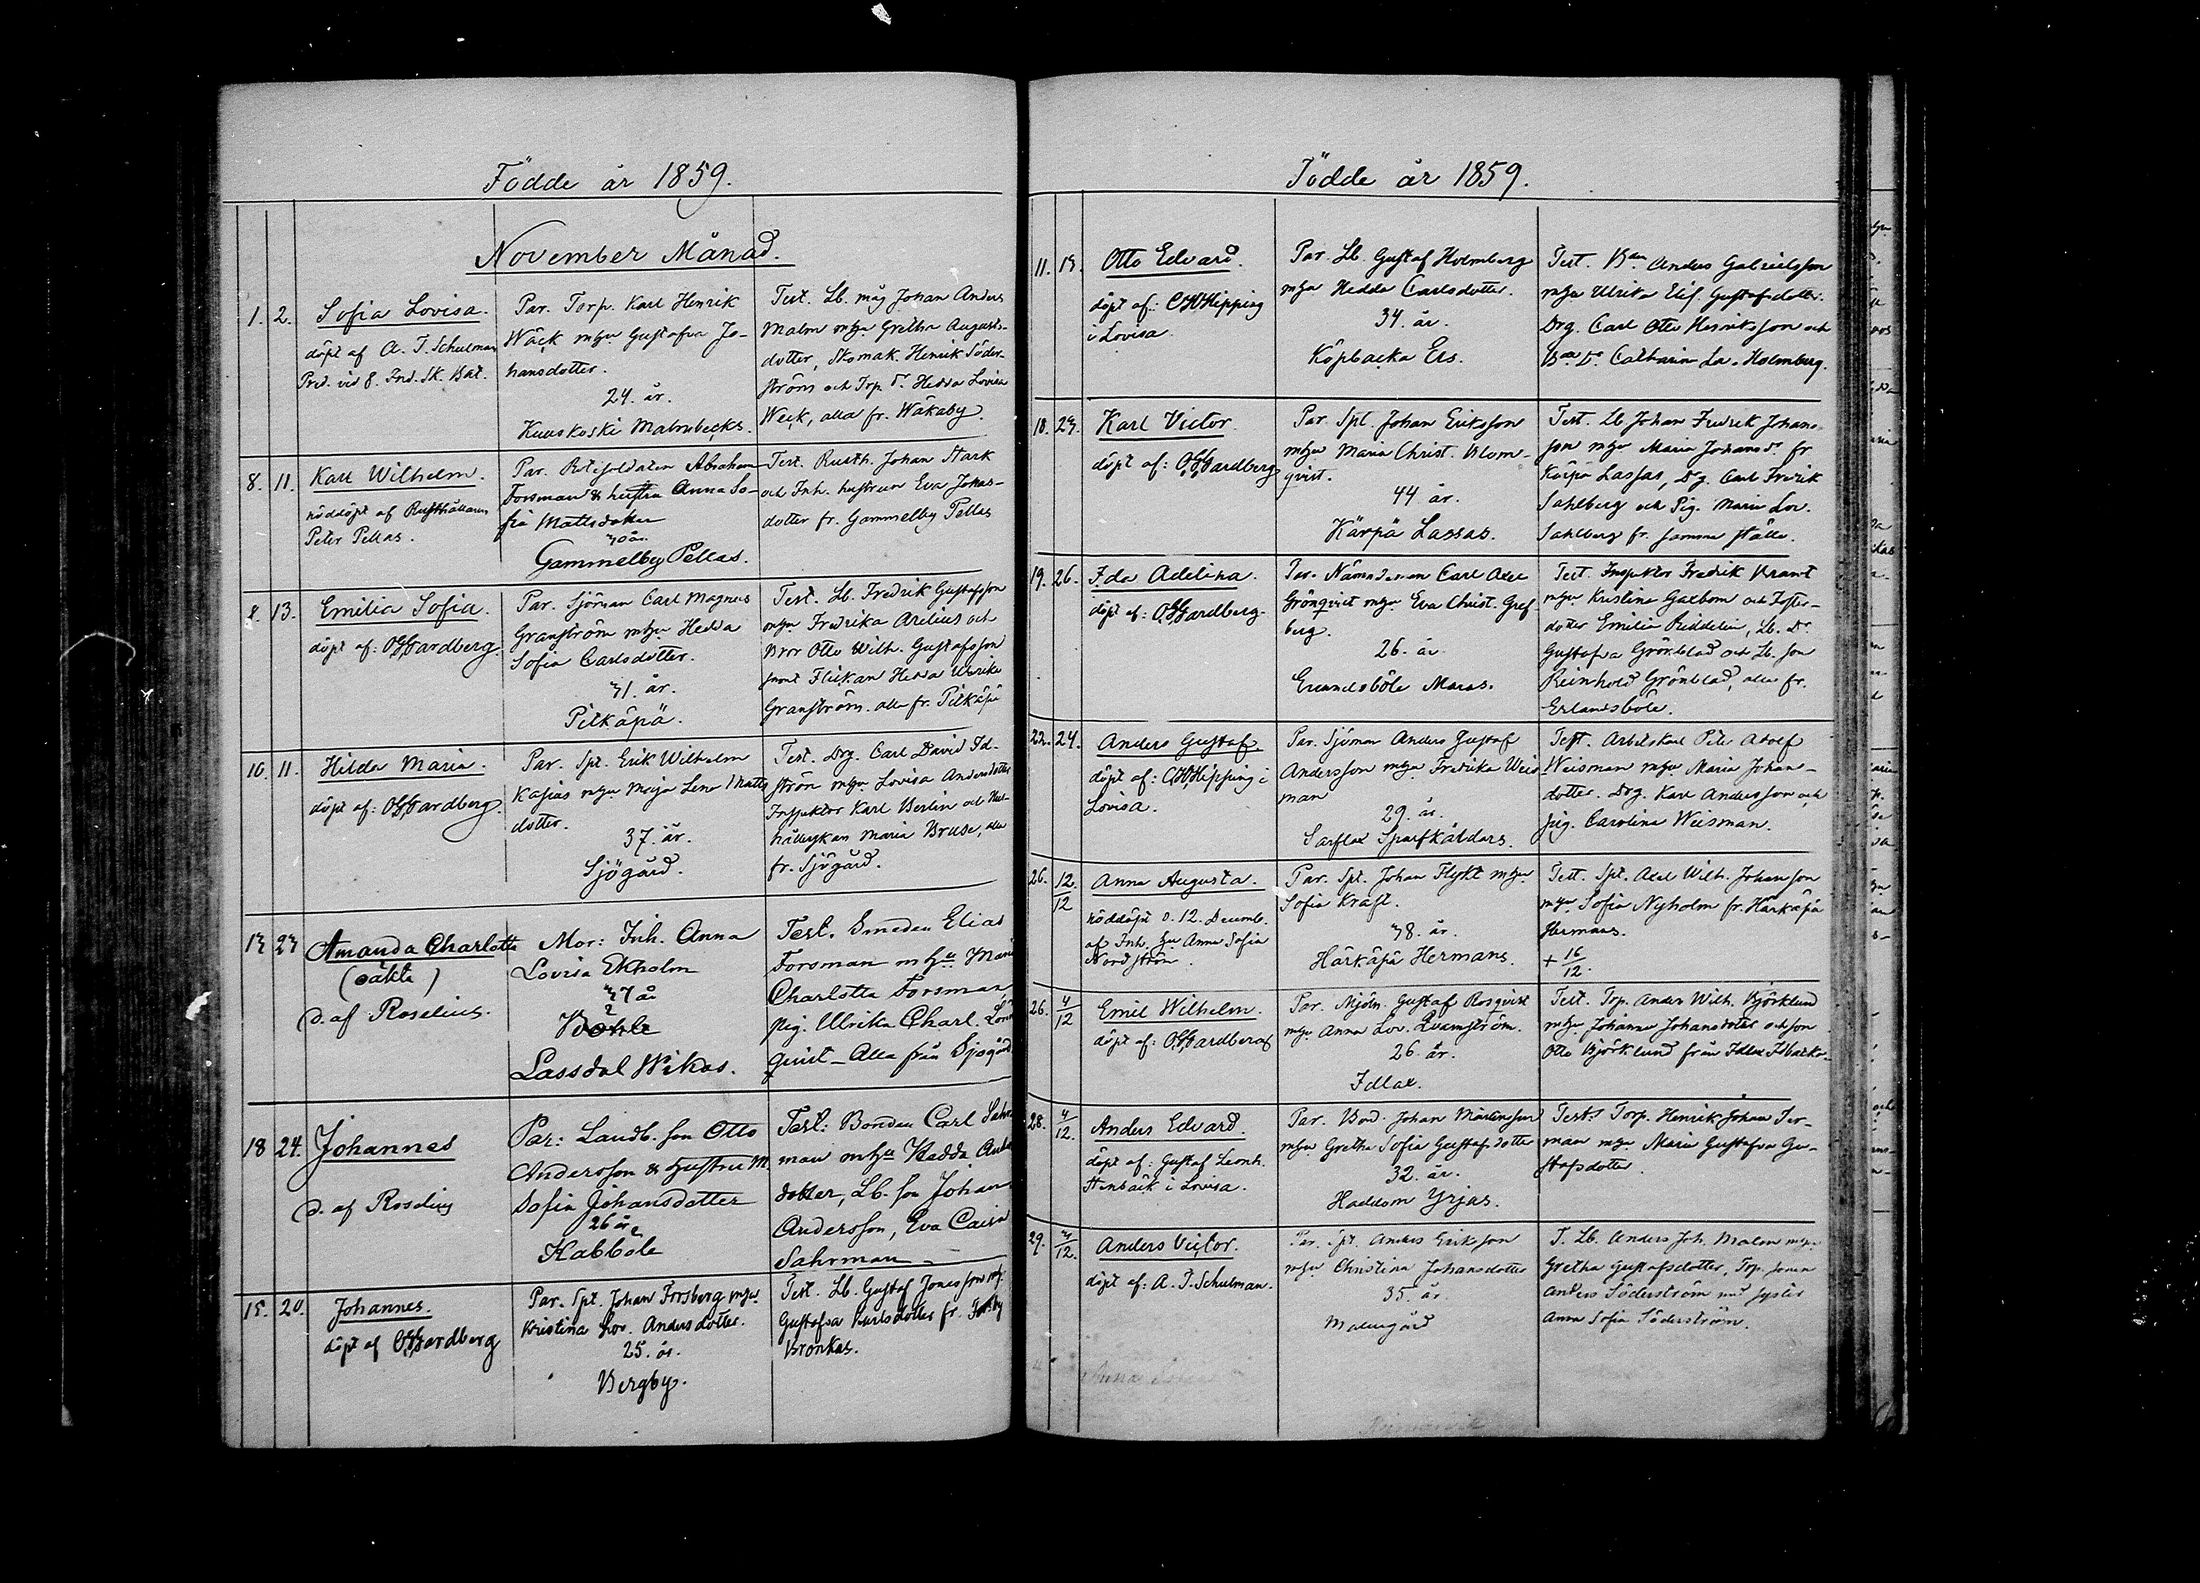 Födde år 1859.
November Månad.
1. 2. Sofia Lovisa.
döpt af A. T. Schulman
Pred. vid 8. Fns. Sk. Bat.
Par. Torp. Karl Henrik
Wäck m hu Gustafva Jo-
hansdotter.
24. år.
Kuuskoski Malmbecks.
Test. Lb. måg Johan Anders
Malm m hu Gretha Augusts-
dotter, Skomak. Henrik Söder-
ström och Torp. dr. Hedda Lovisa
Weck, alla fr. Wåkaby
8. 11. Karl Wilhelm.
nöddöpt af Rusthållaren
Peter Pellas.
Par. Rotesoldaten Abraham
Forsman & hustru Anna So-
fia Mattsdotter
30 år.
Gammelby Pellas.
Test. Rusth. Johan Stark
och Inh. hustrun Eva Johas-
dotter fr. Gammelby Pellas
8. 13. Emilia Sofia.
döpt af: O. G. Gardberg.
Par. Sjöman Carl Magnus
Granström m hu Hedda
Sofia Carlsdotter.
31. år.
Pitkäpä.
Test. Lb. Fredrik Gustafsson
m hu Fredrika Arelius och
Bror Otto Wilh. Gustafsson
samt Flickan Hedda Ulrika
Granström. alla fr. Pitkäpä
10. 11. Hilda Maria.
döpt af: O. G. Gardberg.
Par. Spt. Erik Wilhelm
Kasias m hu Maja Lena Matts
dotter.
37. år.
Sjögård.
Test. Drg. Carl David Id-
ström m hu Lovisa Andersdotter
Inspektor Karl Berlin och Hus-
hållerskan Maria Bruse, alla
fr. Sjögård.
13 23 Amanda Charlotta
(oäkta)
d. af Roselius.
Mor: Inh. Anna
Lovisa Ekholm
37 år
Lassdal Wikas.
Test. Smeden Elias
Forsman m hu Maria
Charlotta Forsman
pig. Ulrika Charl. Lönn
quist — Alla från Sjögård
18 24. Johannes
d. af Roselius
Par: Landb. son Otto
Andersson & hustru M
Sofia Johansdotter
26 år
Kabböle
Test: Bonden Carl Sahr
man m hu Hedda Anders
dotter, Lb. son Johan
Andersson, Eva Caisa
Sahrman
15. 20. Johannes.
döpt af O. G. Gardberg
Par. Spt. Johan Forsberg m hu
Kristina Lov. Andersdotter.
25. år.
Bergby.
Test. Lb. Gustaf Jonasson m h.
Gustafva Karlsdotter fr.
Bronkas.
Födde år 1859.
11. 13. Otto Edvard.
döpt af: C. H. Hipping
i Lovisa.
Par. Lb. Gustaf Holmberg
m hu Hedda Carlsdotter.
34. år.
Köpbacka Ers.
Test. Bon Anders Gabrielsson
m hu Ulrika Elis. Gustafsdotter.
Drg. Carl Otto Henriksson och
Bon Dr Catharina Lo. Holmberg.
18. 23. Karl Victor.
döpt af: O. G. Gardberg
Par. Spt. Johan Eriksson
m hu Maria Christ. Blom-
qvist.
44 år.
Kärpä Lassas.
Test. Lb. Johan Fredrik Johans-
son m hu Maria Johansdr. fr
Kärpä Lassas, Dg. Carl Fredrik
Sahlberg och Pig. Maria Lov.
Sahlberg fr. samma ställe.
19. 26. Ida Adelina.
döpt af: O. G. Gardberg.
Par. Nämndeman Carl Axel
Grönqvist m hu Eva Christ. Gref
berg.
26. år.
Erlandsböle Maras.
Test. Inspektor Fredrik Brant
m hu Kristina Galbom och Foster-
dotter Emilia Riddelin, Lb. Dr.
Gustafva Grönblad och Lb. son
Reinhold Grönblad, alla fr.
Erlandsböle.
22. 24. Anders Gustaf.
döpt af: C. H. Hipping i
Lovisa.
Par. Sjöman Anders Gustaf
Andersson m hu Fredrika Weis
man
29. år.
Sarflax Sparfkåldars.
Test. Arbetskarl Peter Adolf
Weisman m hu Maria Johans-
dotter. Drg. Karl Andersson och
pig. Carolina Weisman.
26. 12/12 Anna Augusta.
nöddöpt d. 12. Decemb.
af Inh. hu Anna Sofia
Nordström.
Par. Spt. Johan Flykt m hu
Sofia Kraft.
38. år.
Härkäpä Hermans.
Test. Spt. Axel Wilh. Johansson
m hu Sofia Nyholm fr. Härkäpä
Hermans.
+ 16/12.
26. 4/12 Emil Wilhelm.
döpt af: O. G. Gardberg
Par. Mjöln. Gustaf Rosqvist
m hu Anna Lov. Qvarnström.
26. år.
Idlax.
Test. Torp. Anders Wilh. Björklund
m hu Johanna Johansdotter och son
Otto Björklund från Idlax Idbacka.
28. 4/12. Anders Edvard.
döpt af: Gustaf Leonh.
Stenbäck i Lovisa.
Par. Bond. Johan Mårtensson
m hu Gretha Sofia Gustafsdotter
32. år.
Haddom Yrjas.
Test. Torp. Henrik Johan For-
man m hu Maria Gustafva Gu-
stafsdotter.
29. 3/12. Anders Victor.
döpt af: A. T. Schulman.
Par. Spt. Anders Eriksson
m hu Christina Johansdotter
35. år.
Malmgård
T. Lb. Anders Joh. Malm m hu
Gretha Gustafsdotter, Torp. sonen
Anders Söderström med syster
Anna Sofia Söderström.